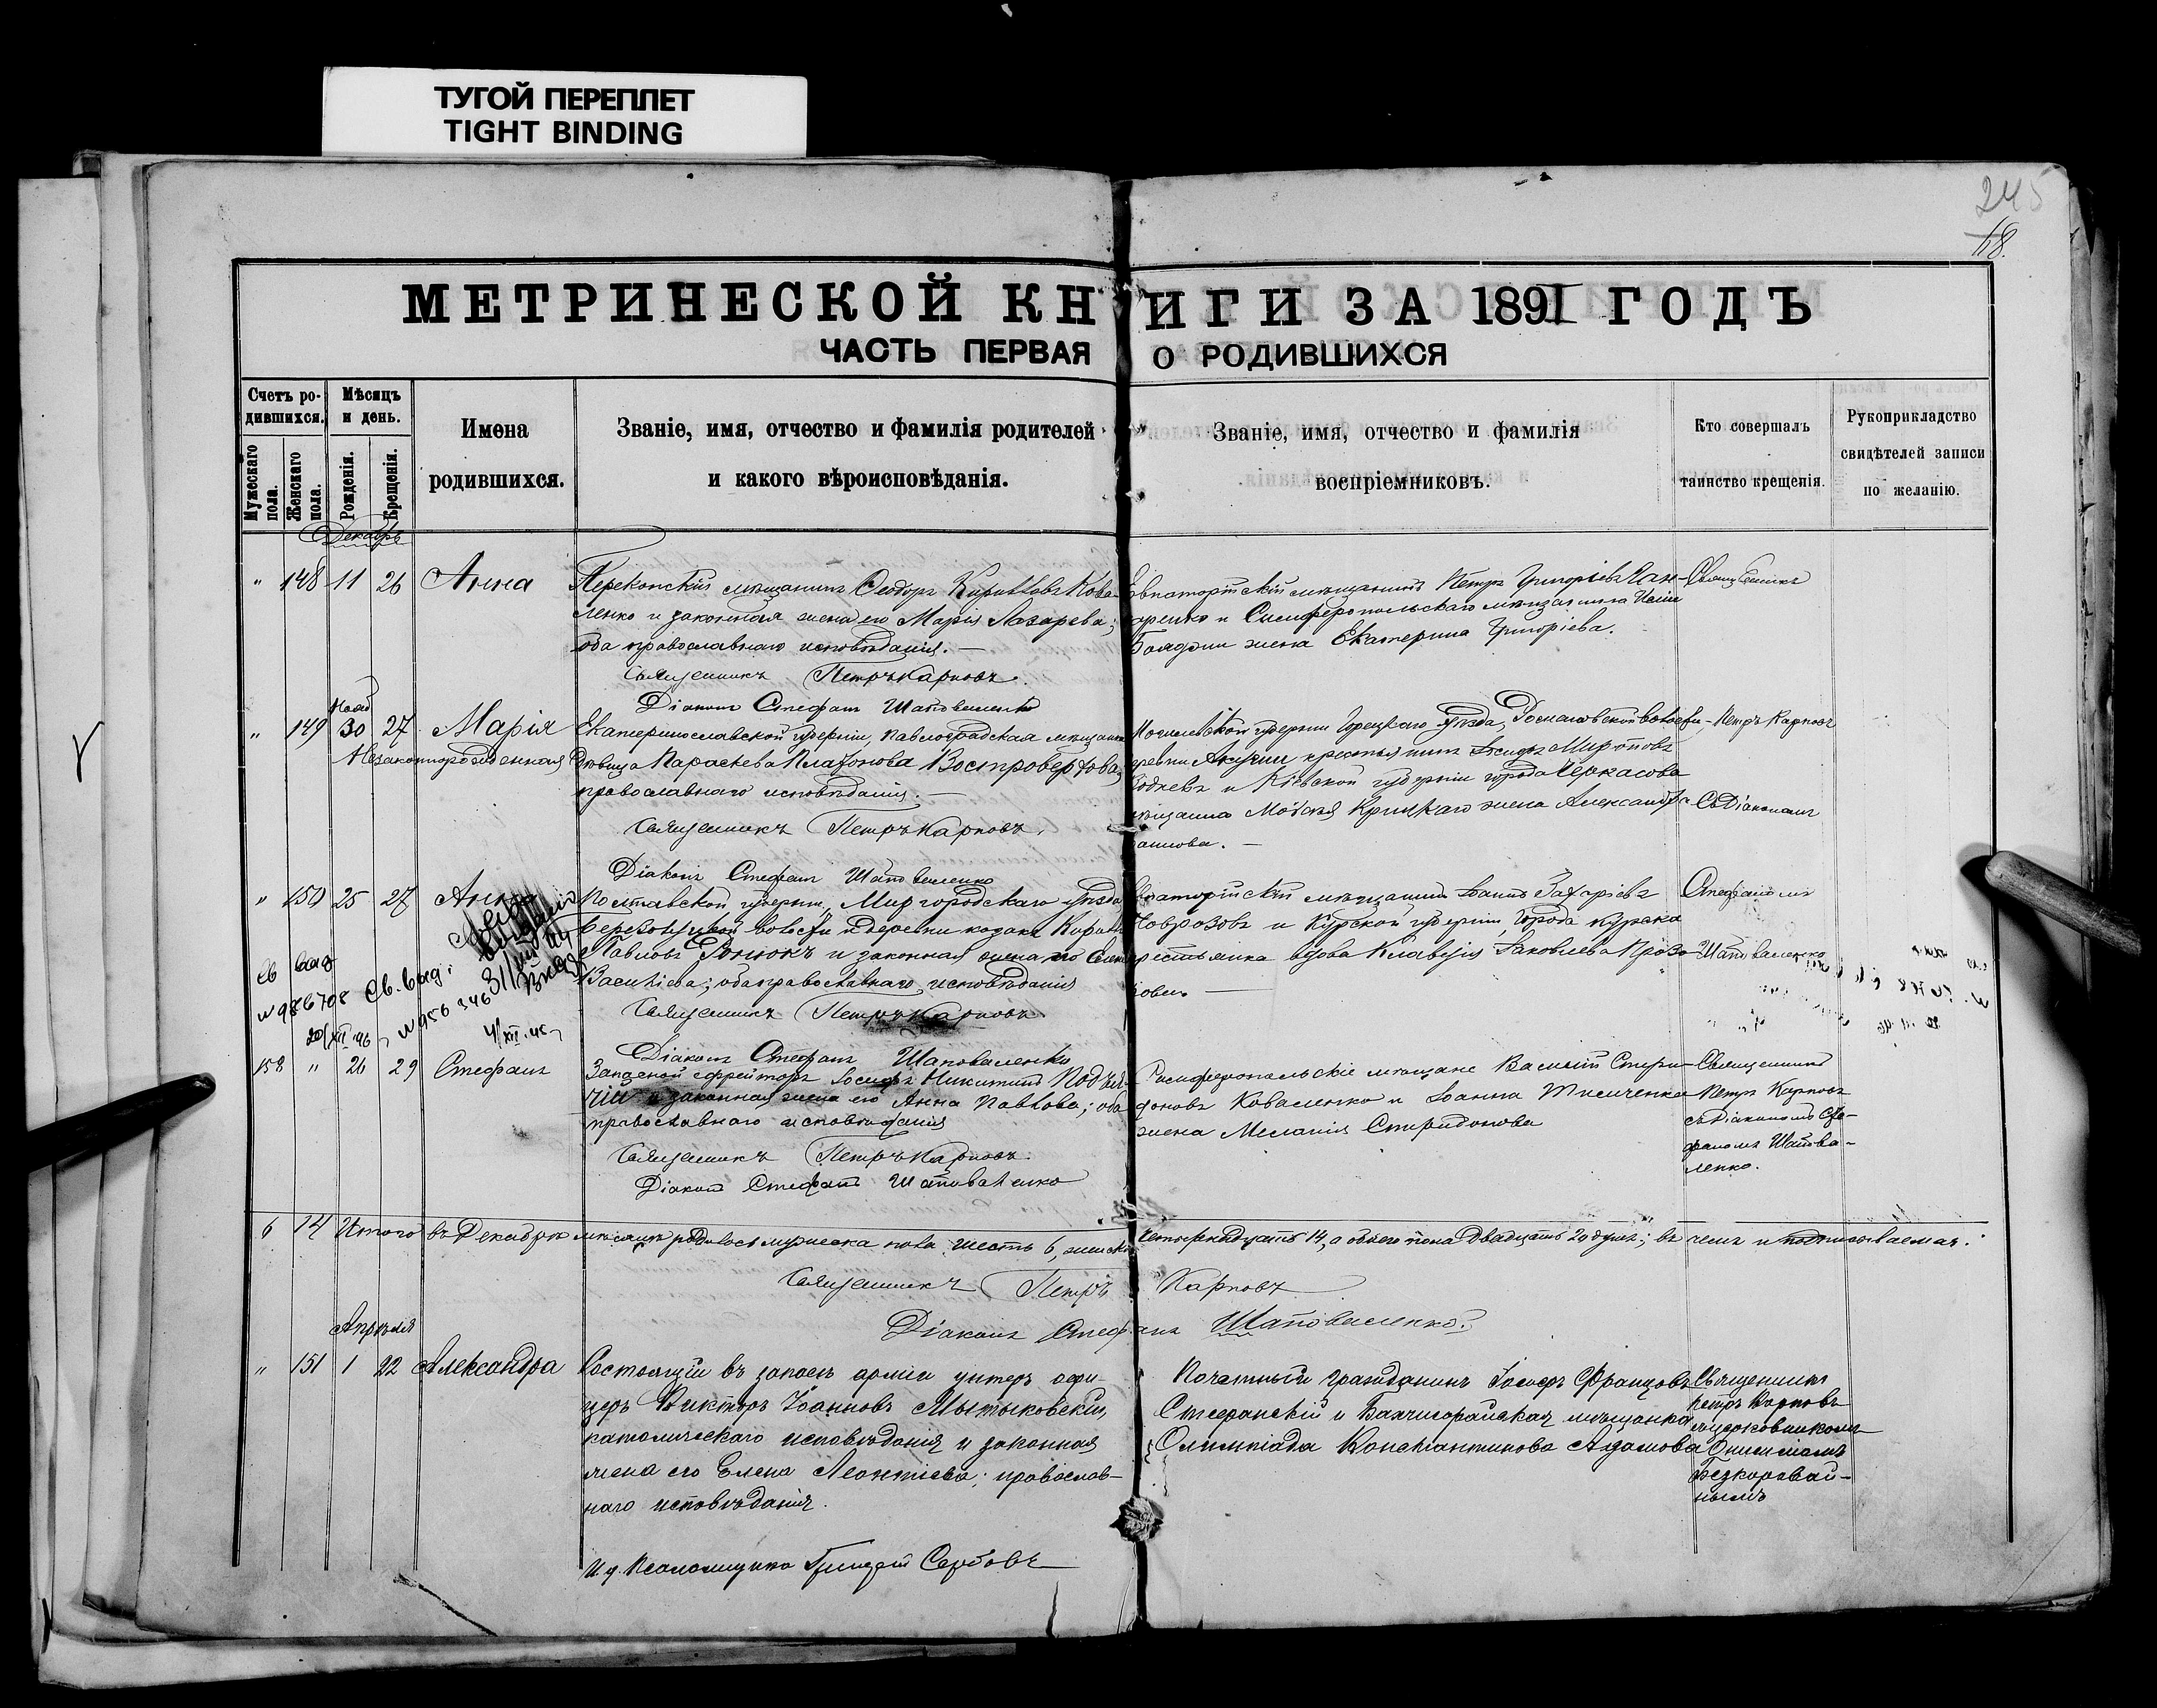 ТУГОЙ ПЕРЕПЛЕТ
TIGHT BINDING
245
МЕТРИЧЕСКОЙ КНИГИ ЗА 1891 ГОДЪ
ЧАСТЬ ПЕРВАЯ О РОДИВШИХСЯ
Счетъ родившихся.
Мужескаго пола.
Женскаго пола.
Мѣсяцъ и день.
Рожденія.
Крещенія.
Имена родившихся.
Званіе, имя, отчество и фамилія родителей
и какого вѣроисповѣданія.
Званіе, имя, отчество и фамилія
воспріемниковъ.
Кто совершалъ
таинство крещенія.
Рукоприкладство
свидѣтелей записи
по желанію.
Декабрь
" 148 11 26 Анна
Перекопскій мѣщанинъ Ѳеодоръ Кирилловъ Кова-
ленко и законная жена его Марія Лазарева;
оба православнаго исповѣданія.
Священникъ Петръ Карповъ.
Діаконъ Стефанъ Шаповаленко
Евпаторійскій мѣщанинъ Петръ Григорьевъ
и Симферопольскаго мѣщанина
жена Екатерина Григоріева.
Священникъ
" 149 30 27 Марія
Незаконнорожденная
Екатеринославской губерніи, Павлоградская мѣщанка
Дѣвица Параскева Платонова Востровертова;
православнаго исповѣданія.
Священникъ Петръ Карповъ.
Діаконъ Стефанъ Шаповаленко
Могилевской губерніи Горецкаго уѣзда, волости,
деревни крестьянинъ Іосифъ Мироновъ
и Кіевской губерніи города Черкасова
мѣщанина Моисея Крицкаго жена Александра
Петръ Карповъ
съ Діакономъ
" 150 25 27 Анна
Полтавской губерніи, Миргородскаго уѣзда,
волости и деревни козакъ Кириллъ
Павловъ и законная жена его
Васильева; оба православнаго исповѣданія
Священникъ Петръ Карповъ
Діаконъ Стефанъ Шаповаленко
Евпаторійскій мѣщанинъ Іоаннъ Захаріевъ
и Курской губерніи, города Курска
крестьянка вдова Клавдія Яковлева
Стефаномъ
Шаповаленко
158 " 26 29 Стефанъ
Запасной ефрейторъ Іосифъ Никитинъ
и законная жена его Анна Павлова; оба
православнаго исповѣданія
Священникъ Петръ Карповъ.
Діаконъ Стефанъ Шаповаленко
Симферопольскіе мѣщане Василій Спири-
доновъ Коваленко и Іоанна Тимченка
жена Меланія Спиридонова
Священникъ
Петръ Карповъ
съ Діакономъ Сте-
фаномъ Шапова-
ленко.
6 14 Итого въ Декабрѣ мѣсяцѣ родилось мужеска пола шесть 6, женска четырнадцать 14, а обоего пола двадцать 20 душъ; въ чемъ и подписываемся:
Священникъ Петръ Карповъ
Діаконъ Стефанъ Шаповаленко.
Апрѣля
" 151 1 22 Александра
Состоящій въ запасѣ арміи унтеръ офи-
церъ Викторъ Іоанновъ Мытыковскій,
католическаго исповѣданія и законная
жена его Елена Леонтіева; православ-
наго исповѣданія.
Почетный гражданинъ Іосифъ Францовъ
Стефанскій и Бахчисарайская мѣщанка
Олимпіада Константинова Адамова
Священникъ
Петръ Карповъ
Безкоровай-
нымъ
И. д. Псаломщика Григорій Сербовъ